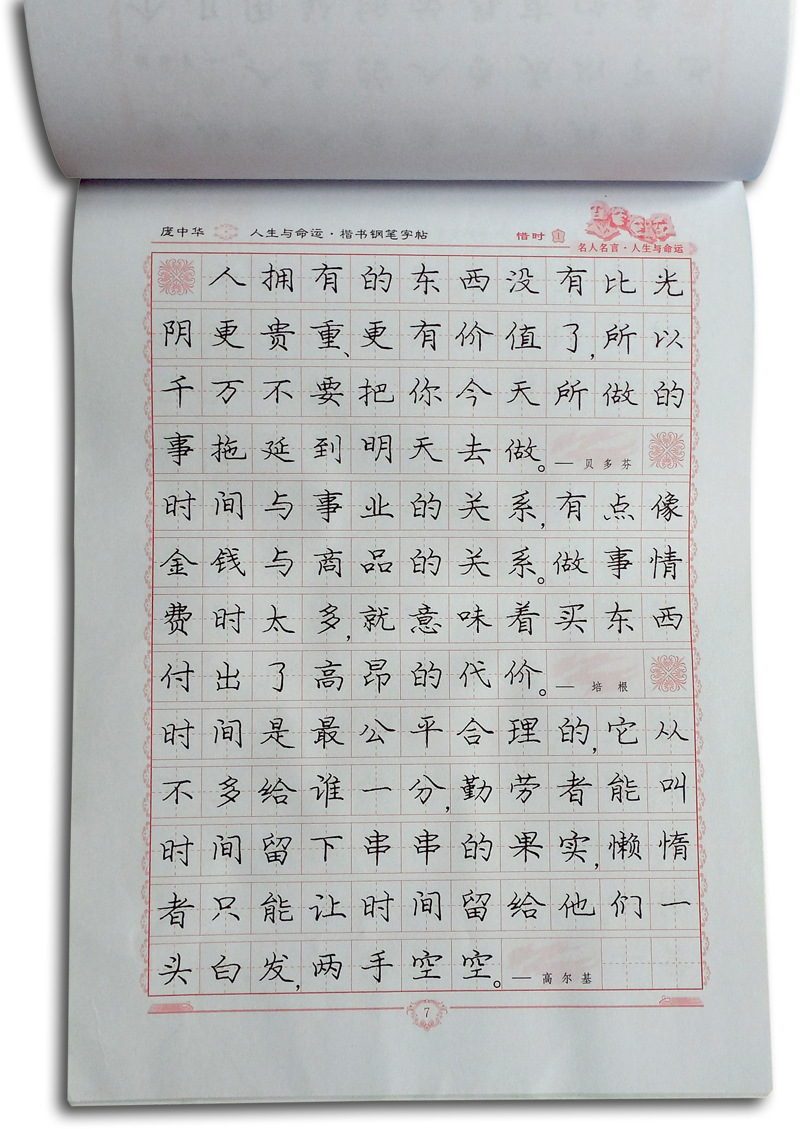 庞中华 人生与命运·楷书钢笔字帖 惜时 1
名人名言·人生与命运
人拥有的东西没有比光
阴更贵重、更有价值了,所以
千万不要把你今天所做的
事拖延到明天去做。— 贝多芬
时间与事业的关系,有点像
金钱与商品的关系。做事情
费时太多,就意味着买东西
付出了高昂的代价。— 培根
时间是最公平合理的,它从
不多给谁一分,勤劳者能叫
时间留下串串的果实,懒惰
者只能让时间留给他们一
头白发,两手空空。— 高尔基
7